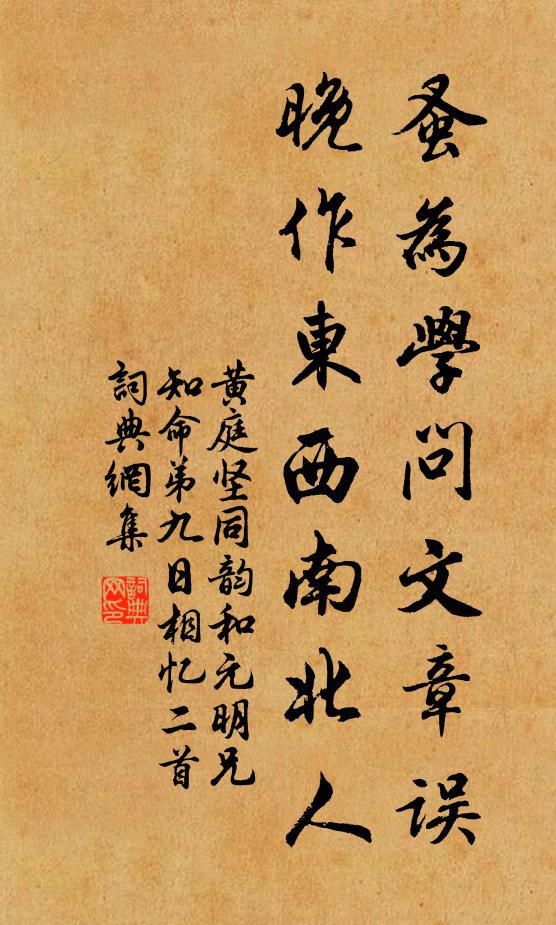 蚤為學問文章误
晚作東西南北人
黄庭坚同韵和元明兄
知命弟九日相忆二首
詞典網集
詞典网印